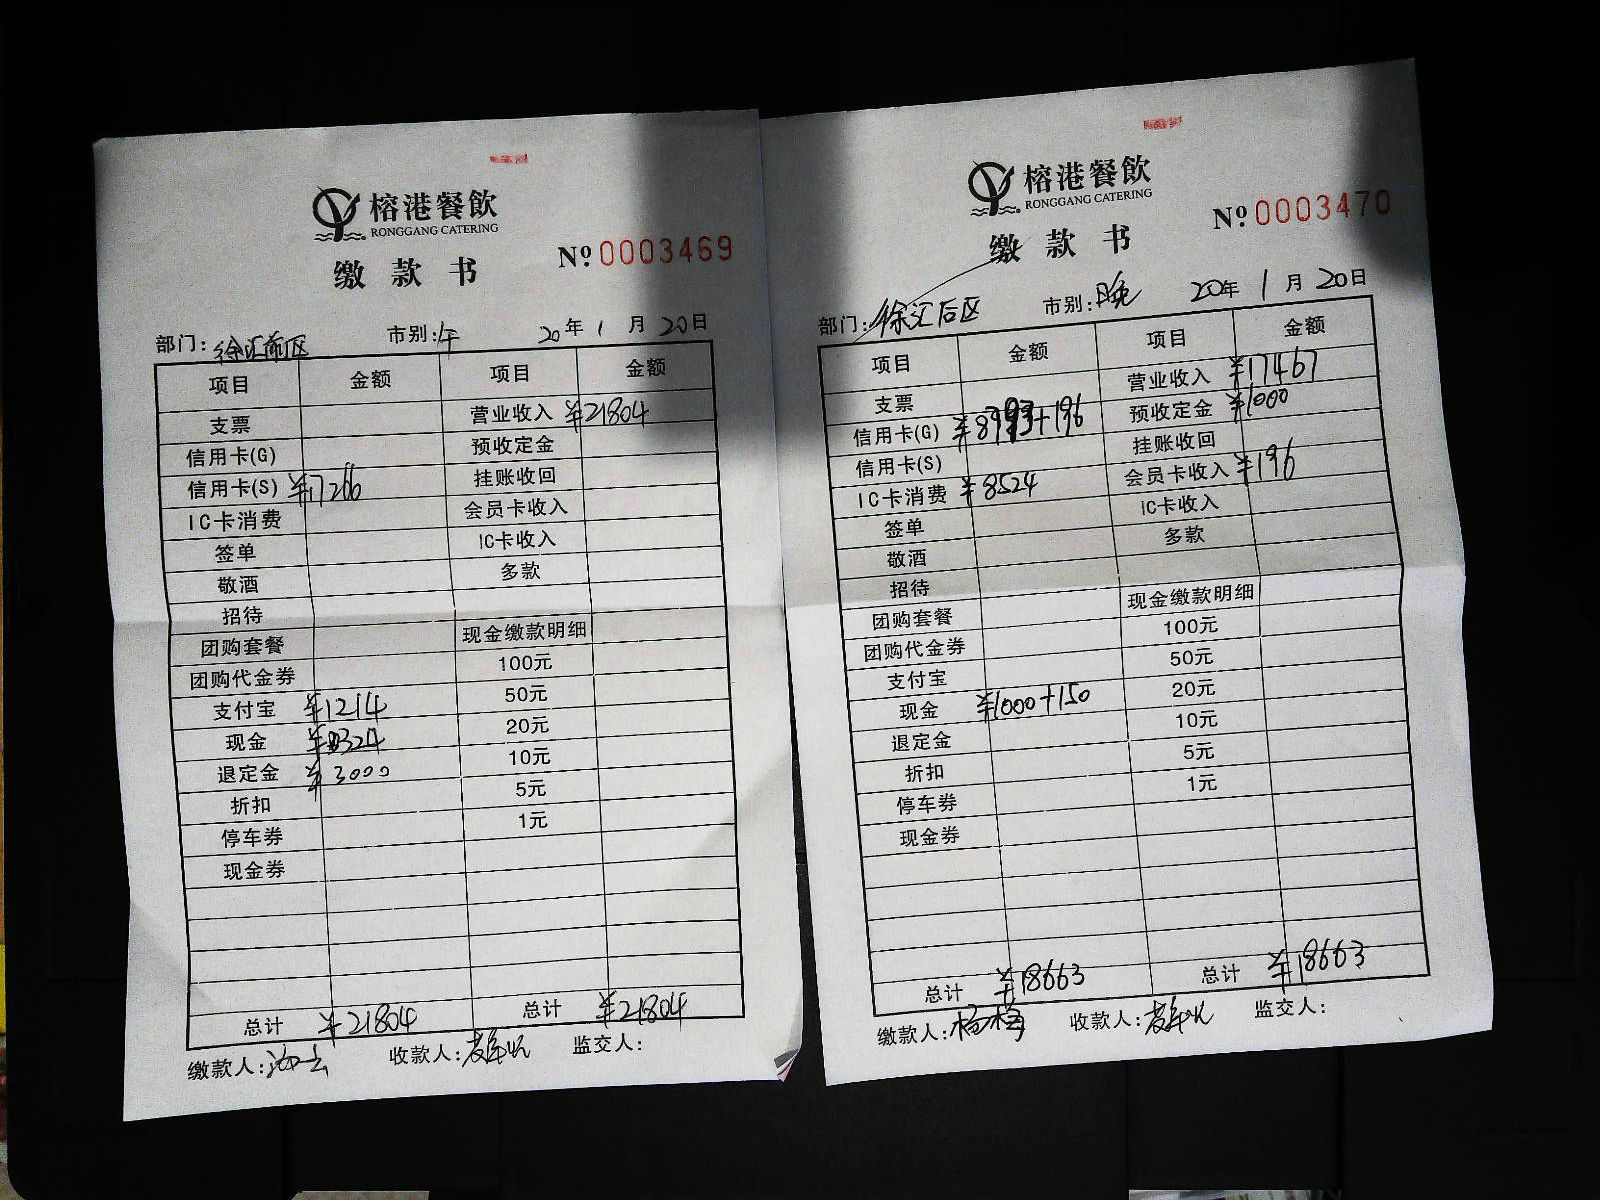 榕港餐飲
RONGGANG CATERING
缴款书
№ 0003469
部门: 徐汇前区 市别: 午 20年1月20日
项目 金额 项目 金额
支票 营业收入 ¥21804
信用卡(G) 预收定金
信用卡(S) ¥17266 挂账收回
IC卡消费 会员卡收入
签单 IC卡收入
敬酒 多款
招待
团购套餐 现金缴款明细
团购代金券 100元
支付宝 ¥1214 50元
现金 ¥324 20元
退定金 ¥3000 10元
折扣 5元
停车券 1元
现金券
总计 ¥21804 总计 ¥21804
缴款人: 收款人: 监交人:
榕港餐飲
RONGGANG CATERING
缴款书
№ 0003470
部门: 徐汇后区 市别: 晚 20年1月20日
项目 金额 项目 金额
支票 营业收入 ¥17467
信用卡(G) ¥8793+196 预收定金 ¥1000
信用卡(S) 挂账收回
IC卡消费 ¥8524 会员卡收入 ¥196
签单 IC卡收入
敬酒 多款
招待
团购套餐 现金缴款明细
团购代金券 100元
支付宝 50元
现金 ¥1000+150 20元
退定金 10元
折扣 5元
停车券 1元
现金券
总计 ¥18663 总计 ¥18663
缴款人: 杨梅 收款人: 监交人: